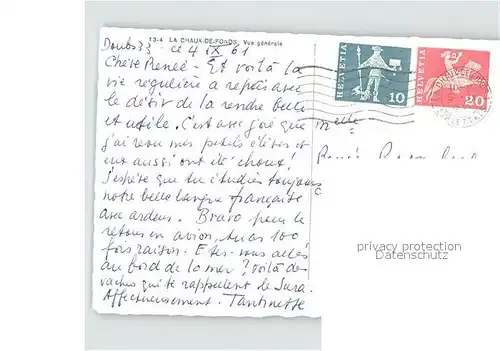 13-4 LA CHAUX-DE-FONDS. Vue générale
Doubs 33 ce 4 IX 61
Chère Renée - Et voilà la
vie régulière a repris avec
le désir de la rendre belle
et utile. C'est avec joie que
j'ai revu mes petits élèves et
eux aussi ont été choux!
J'espère que tu étudies toujours
notre belle langue française
avec ardeur. Bravo pour le
retour en avion, tu as 100
fois raison. Etes-vous allés
au bord de la mer? Voilà des
vaches qui te rappellent le Jura.
Affectueusement. Tantinette
HELVETIA 10
HELVETIA 20
Melle
Renée
privacy protection
DALBU.COM